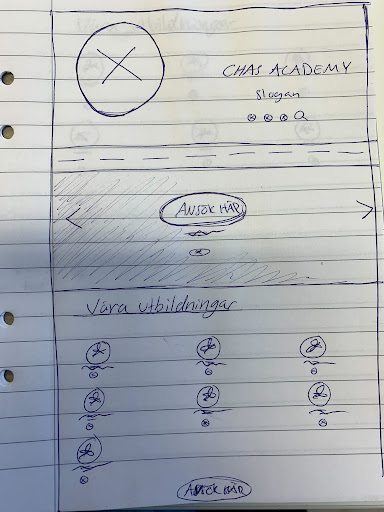 CHAS ACADEMY
slogan
ANSÖK HÄR
Våra utbildningar
ANSÖK HÄR